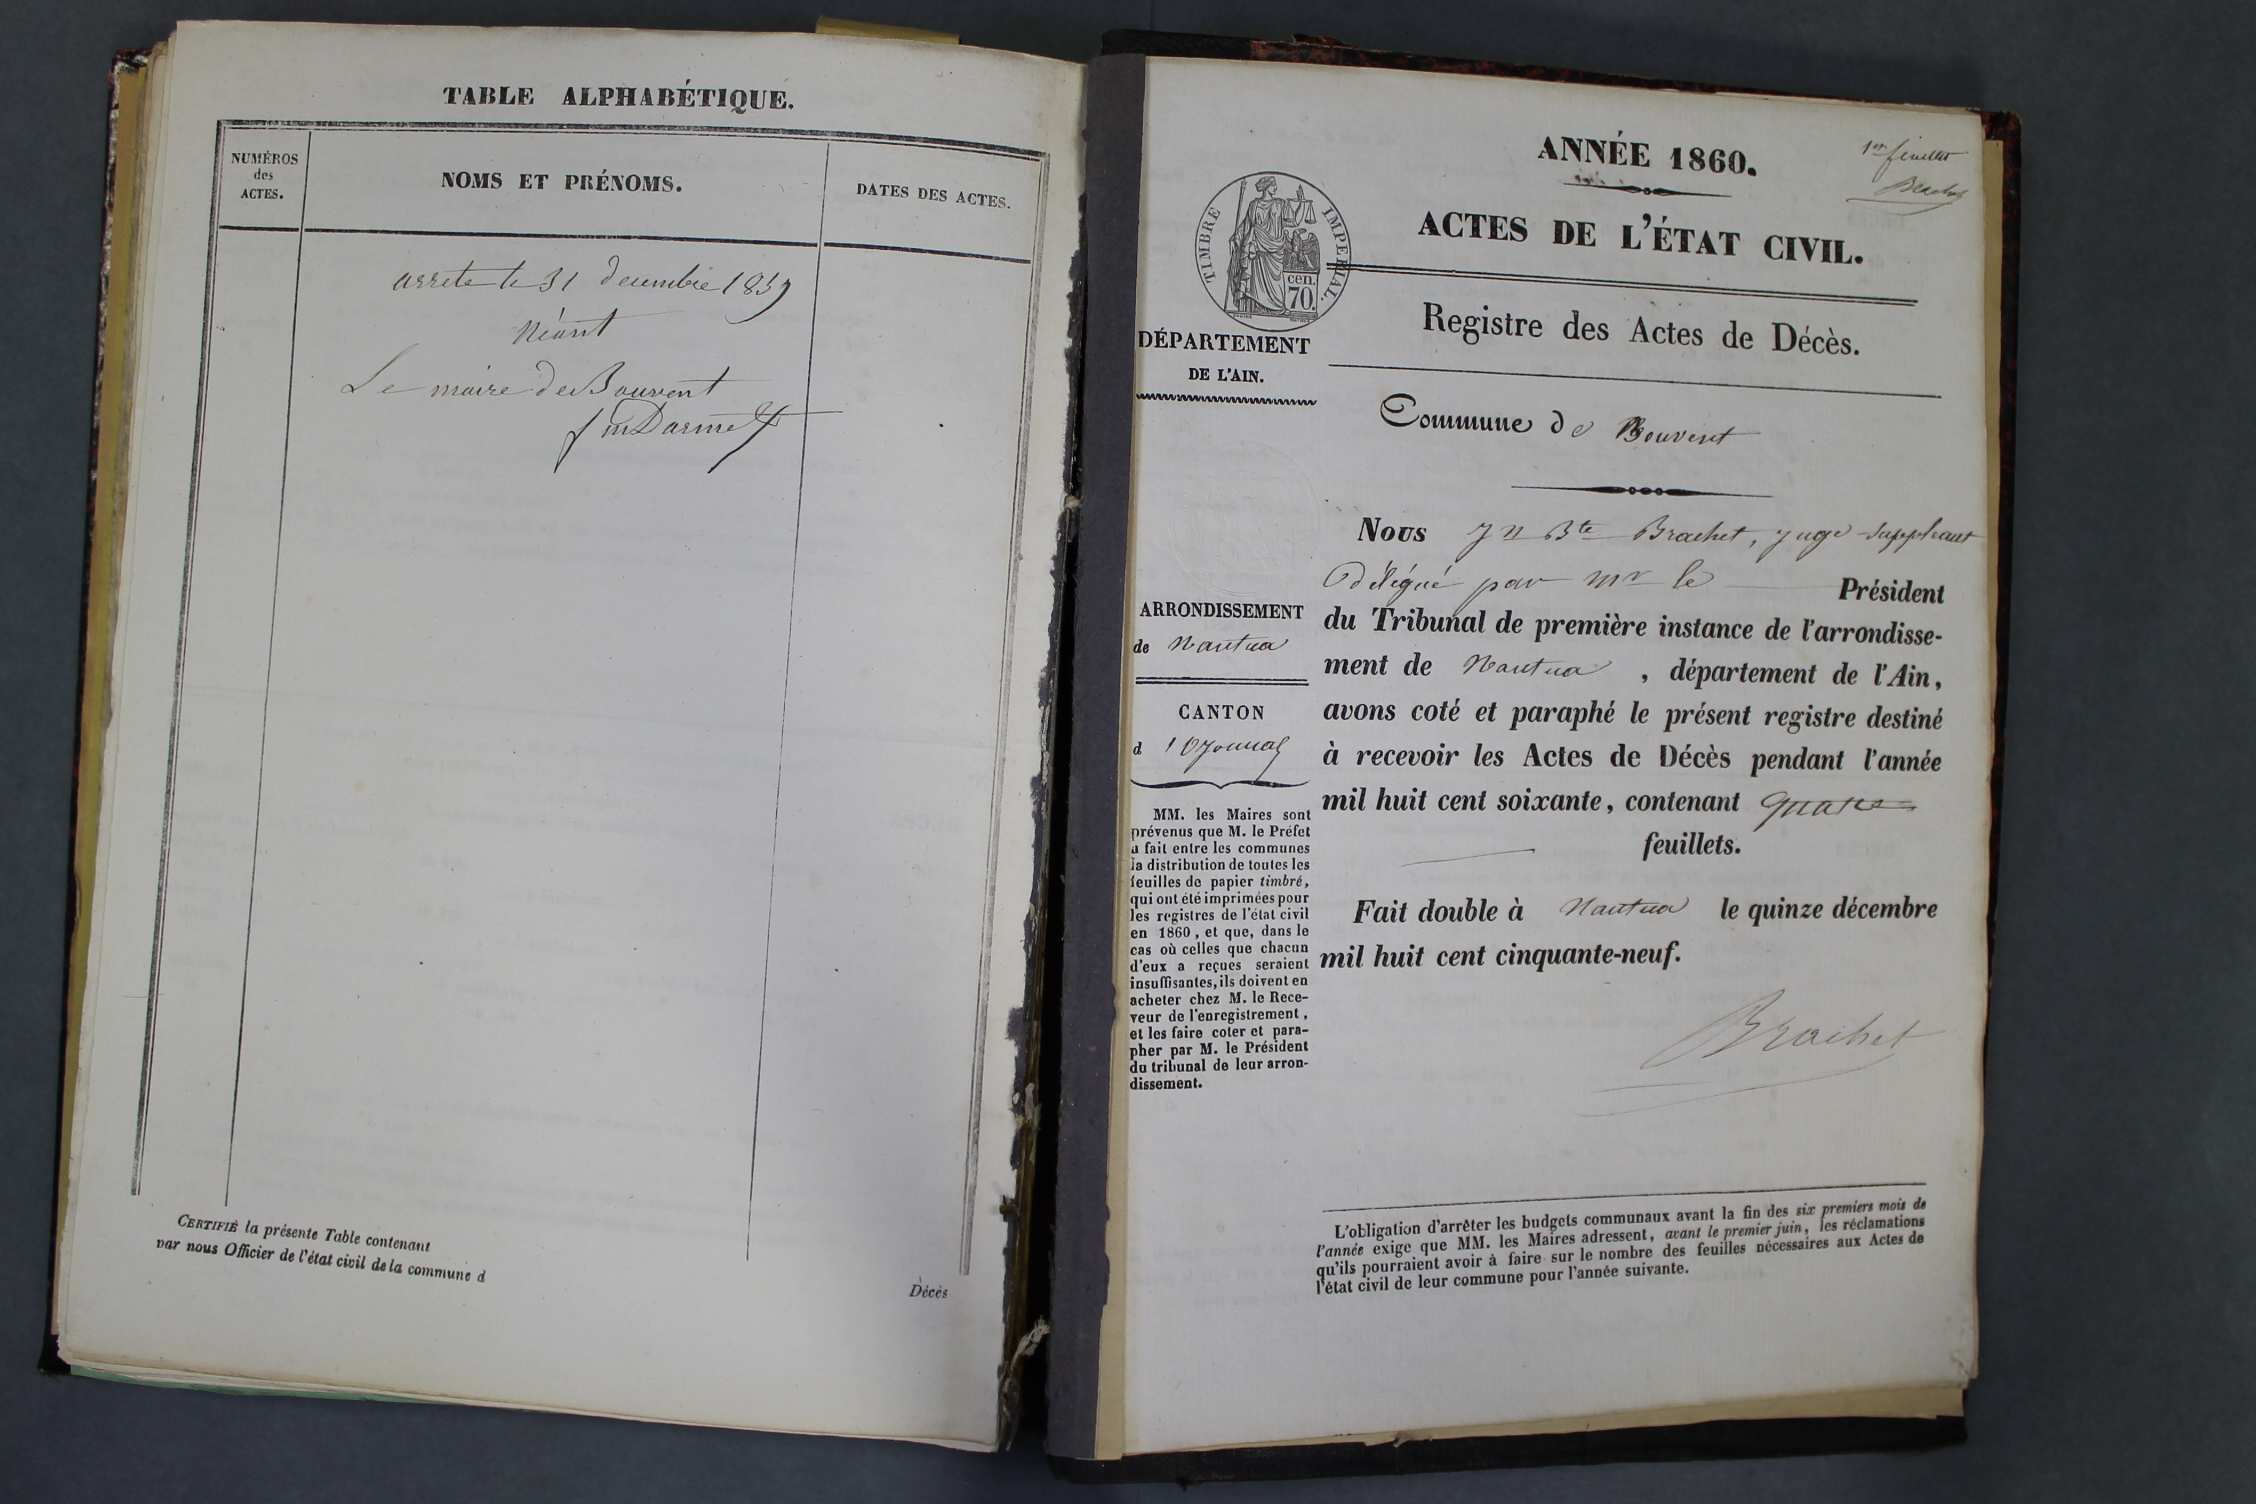 TABLE ALPHABÉTIQUE.
NUMÉROS
des
ACTES.
NOMS ET PRÉNOMS.
DATES DES ACTES.
arrete le 31 decembre 1859
Néant
Le maire de Bouvent
CERTIFIÉ la présente Table contenant
par nous Officier de l'état civil de la commune d
Décès
1er feuillet
Brachet
ANNÉE 1860.
ACTES DE L'ÉTAT CIVIL.
TIMBRE IMPERIAL.
cen.
70.
Registre des Actes de Décès.
DÉPARTEMENT
DE L'AIN.
Commune de Bouvent
Nous Jn Bte Brachet, juge suppleant
Délégué par Mr le Président
du Tribunal de première instance de l'arrondisse-
ment de Nantua, département de l'Ain,
avons coté et paraphé le présent registre destiné
à recevoir les Actes de Décès pendant l'année
mil huit cent soixante, contenant quatre
feuillets.
Fait double à Nantua le quinze décembre
mil huit cent cinquante-neuf.
Brachet
ARRONDISSEMENT
de Nantua
CANTON
d'Oyonnax
MM. les Maires sont
prévenus que M. le Préfet
a fait entre les communes
la distribution de toutes les
feuilles de papier timbré,
qui ont été imprimées pour
les registres de l'état civil
en 1860, et que, dans le
cas où celles que chacun
d'eux a reçues seraient
insuffisantes, ils doivent en
acheter chez M. le Rece-
veur de l'enregistrement,
et les faire coter et para-
pher par M. le Président
du tribunal de leur arron-
dissement.
L'obligation d'arrêter les budgets communaux avant la fin des six premiers mois de
l'année exige que MM. les Maires adressent, avant le premier juin, les réclamations
qu'ils pourraient avoir à faire sur le nombre des feuilles nécessaires aux Actes de
l'état civil de leur commune pour l'année suivante.